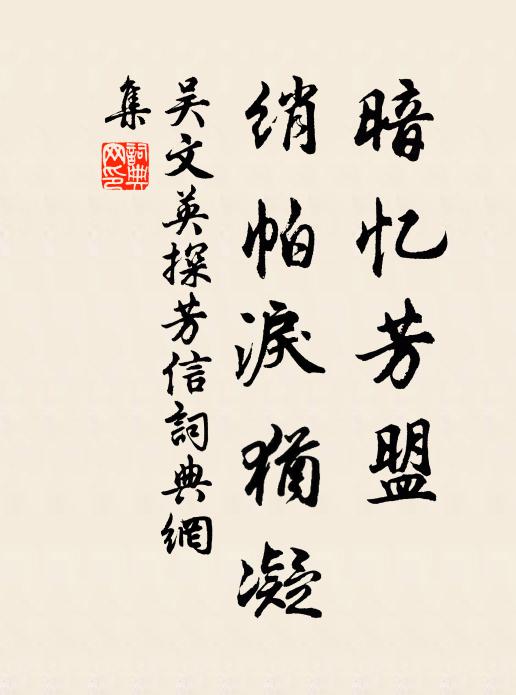 暗忆芳盟
绡帕淚犹凝
吴文英探芳信詞典網
集
詞典網